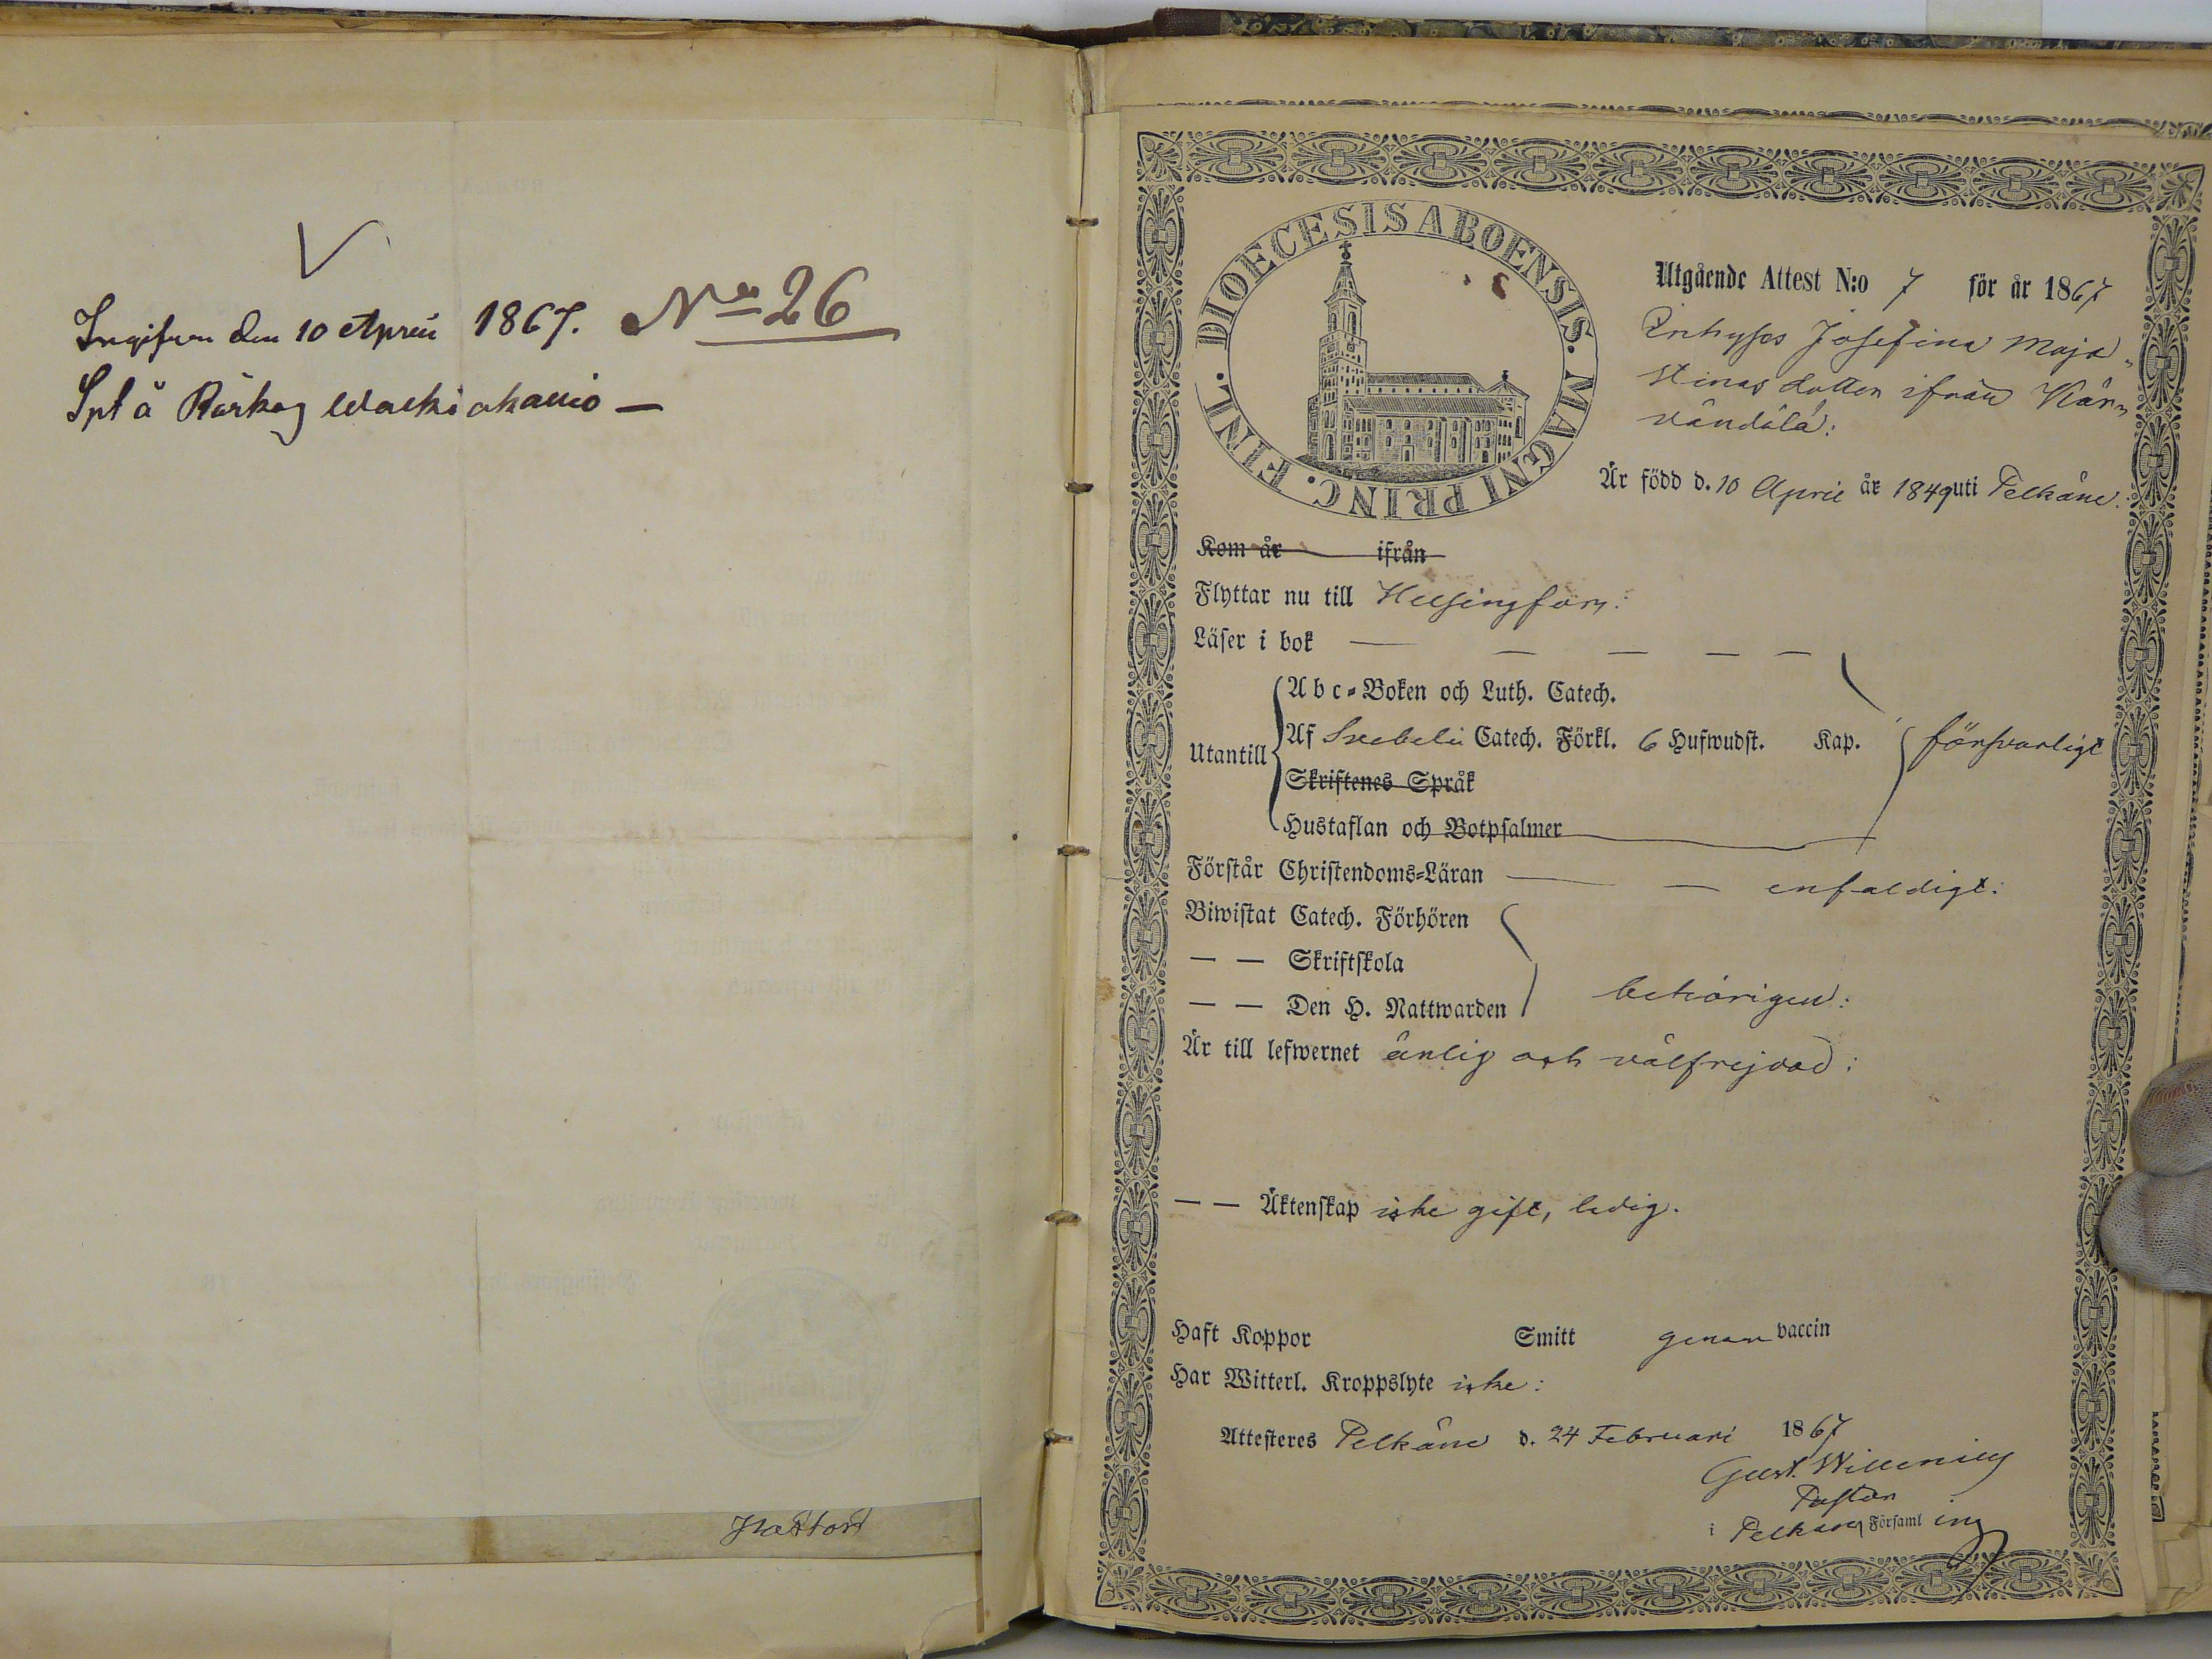 V
Ingifven den 10 April 1867. No 26
Spt å Rörkog
DIOECESIS ABOENSIS. MAGNI PRINC. FINL.
Utgående Attest N:o 7 för år 1867
Inhyses Josefina Maja
stinas dotter ifrån Kär
vändälä:
Är född d. 10 April år 1849 uti Pelkäne.
Kom år ifrån
Flyttar nu till Helsingfors:
Läser i bok — — — — —
Abc-Boken och Luth. Catech.
Utantill Af Svebelii Catech. Förkl. 6 Hufwudst. Kap. försvarligt
Skriftenes Språk
Hustaflan och Botpsalmer
Förstår Christendoms-Läran — — enfaldigt:
Biwistat Catech. Förhören
— — Skriftskola
— — Den H. Nattwarden behörigen:
Är till lefwernet ärlig och välfrejdad:
— — Äktenskap icke gift, ledig.
Haft Koppor Smitt genom vaccin
Har Witterl. Kroppslyte icke:
Attesteres Pelkäne d. 24 Februari 1867
Gust. Willenius
Pastor
i Pelkäne Församl ing